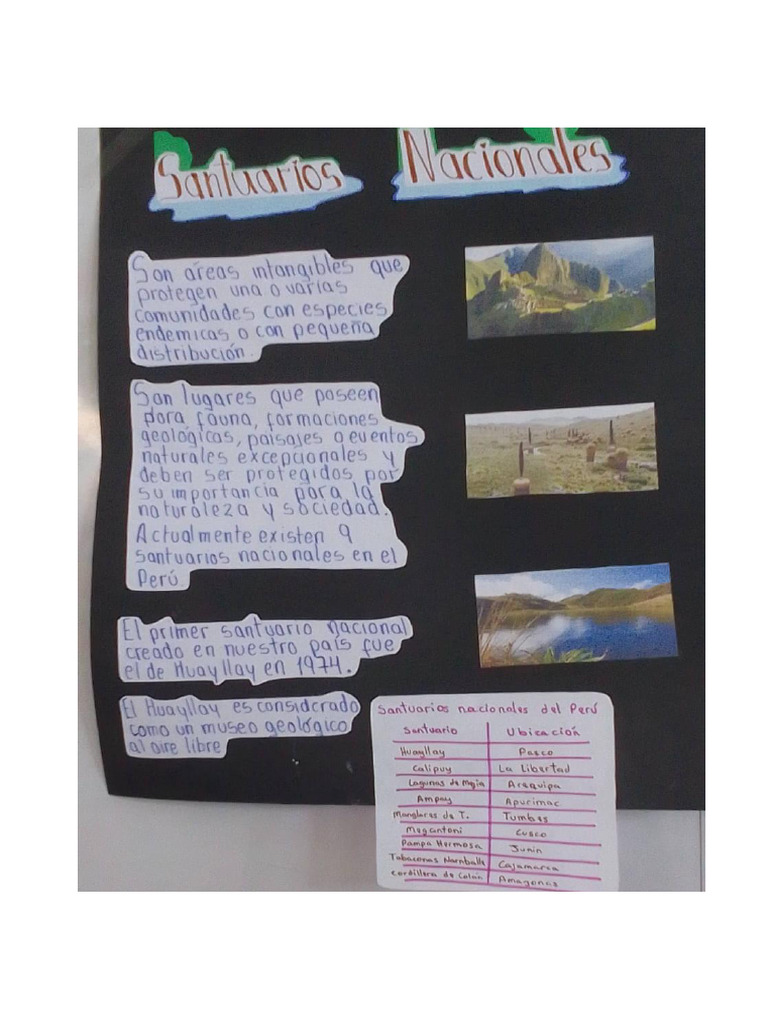 Santuarios Nacionales
Son areas intangibles que
protegen una o varias
comunidades con especies
endemicas o con pequeña
distribución.
Son lugares que poseen
flora fauna, formaciones
geológicas, paisajes o eventos
naturales excepcionales y
deben ser protegidos por
su importancia para la
naturaleza y sociedad.
Actualmente existen 9
santuarios nacionales en el
Perú.
El primer santuario nacional
creado en nuestro país fue
el de Huayllay en 1974.
El Huayllay es considerado
como un museo geológico
al aire libre
Santuarios nacionales del Perú
Santuario Ubicación
Huayllay Pasco
Calipuy La Libertad
Lagunas de Mejia Arequipa
Ampay Apurimac
Manglares de T. Tumbes
Megantoni Cusco
Pampa Hermosa Junin
Tabaconas Namballe Cajamarca
Cordillera de Colán Amazonas